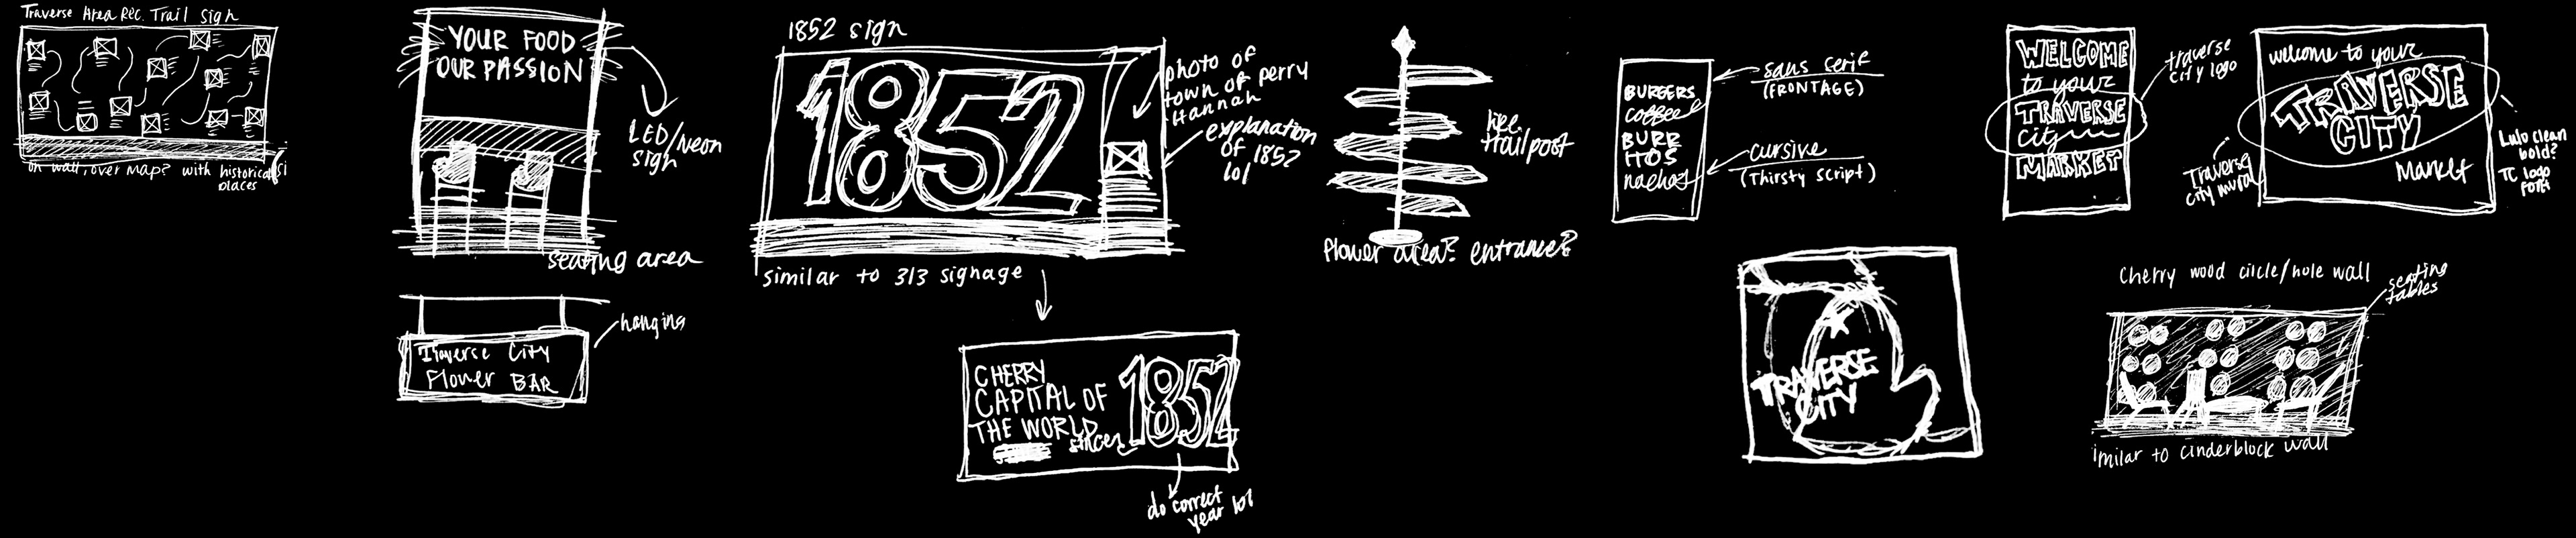 Traverse Area Rec. Trail Sign
on wall, over map? with historical
places
YOUR FOOD
OUR PASSION
LED/Neon
sign
seating area
hanging
Traverse City
Flower BAR
1852 sign
1852
photo of
town of perry
Hannah
explanation
of 1852
lol
similar to 313 signage
CHERRY
CAPITAL OF
THE WORLD
since
1852
do correct
year lol
like
trailpost
flower area? entrance?
BURGERS
coffee
BURR
ITOS
nachos
sans serif
(FRONTAGE)
cursive
(Thirsty Script)
TRAVERSE
CITY
WELCOME
to your
TRAVERSE
city
MARKET
traverse
city logo
welcome to your
TRAVERSE
CITY
Market
Traverse
city mural
Lulo clean
bold?
TC logo
font
cherry wood circle/hole wall
seating
tables
imilar to cinderblock wall